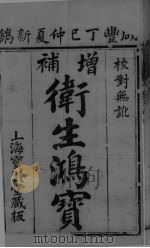 咸豐丁巳仲夏新鐫
校對無訛
增補
衛生鴻寶
上海寶
藏板
mtoou.info